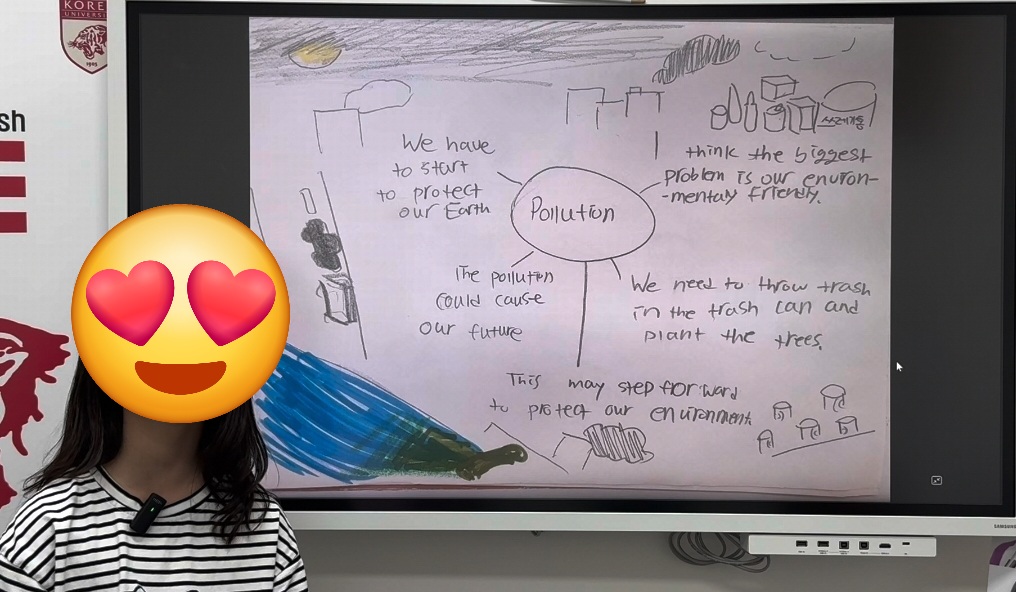 KORE
UNIVERSI
1905
sh
쓰레기통
We have
to start
to protect
our Earth
I think the biggest
problem is our environ-
-mentaly friendly.
Pollution
The pollution
could cause
our future
We need to throw trash
in the trash can and
plant the trees.
This may step forward
to protect our environment
SAMSUNG